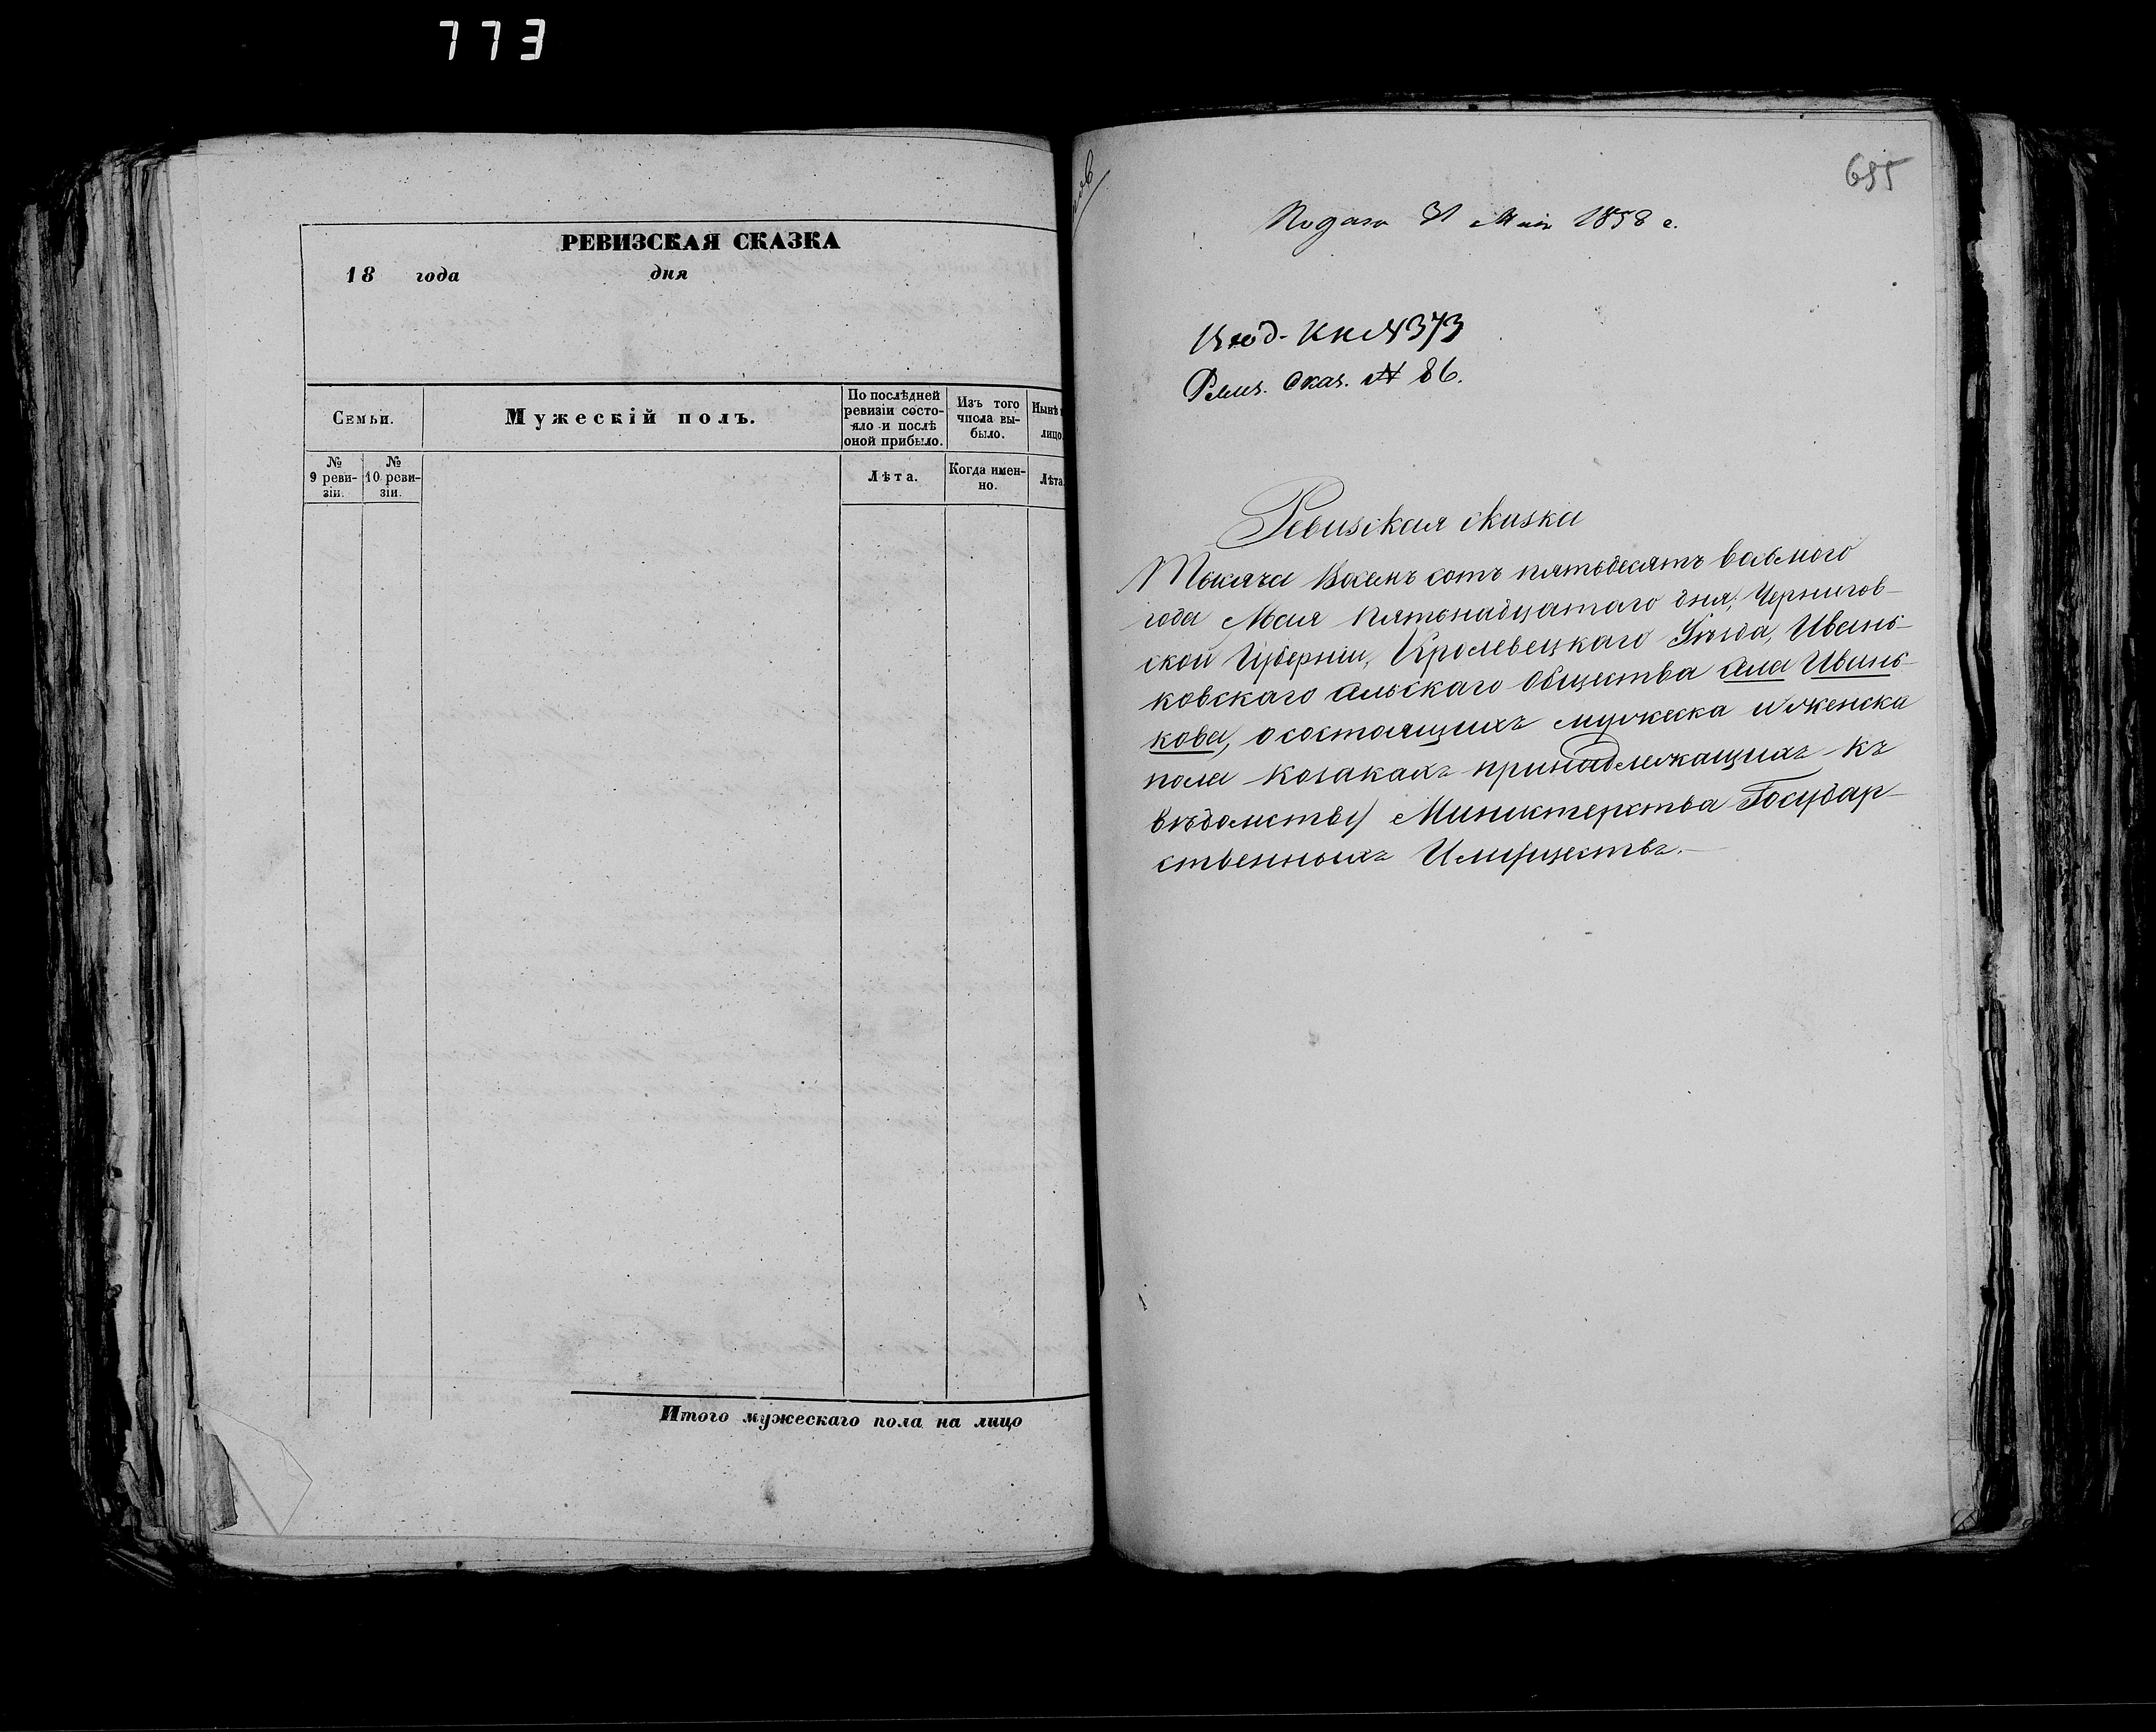 773
РЕВИЗСКАЯ СКАЗКА
18 года дня
Семьи.
Мужескій полъ.
По послѣдней ревизіи состояло и послѣ оной прибыло.
Изъ того числа выбыло.
Нынѣ
лицо
№ 9 ревизіи.
№ 10 ревизіи.
Лѣта.
Когда именно.
Лѣта
Итого мужескаго пола на лицо
685
Подана 31 Мая 1858 г.
кн № 373
Ревиз. Сказ. № 86.
Ревизская сказка
Тысяча восемь сотъ пятьдесятъ восьмого
года Мая пятьнадцатаго дня, Чернигов-
ской Губерніи, Кролевецкаго Уѣзда, Ивань-
ковскаго сельскаго общества села Ивань-
кова, о состоящихъ мужеска и женска
пола козакахъ принадлежащихъ къ
вѣдомству Министерства Государ-
ственныхъ Имуществъ.